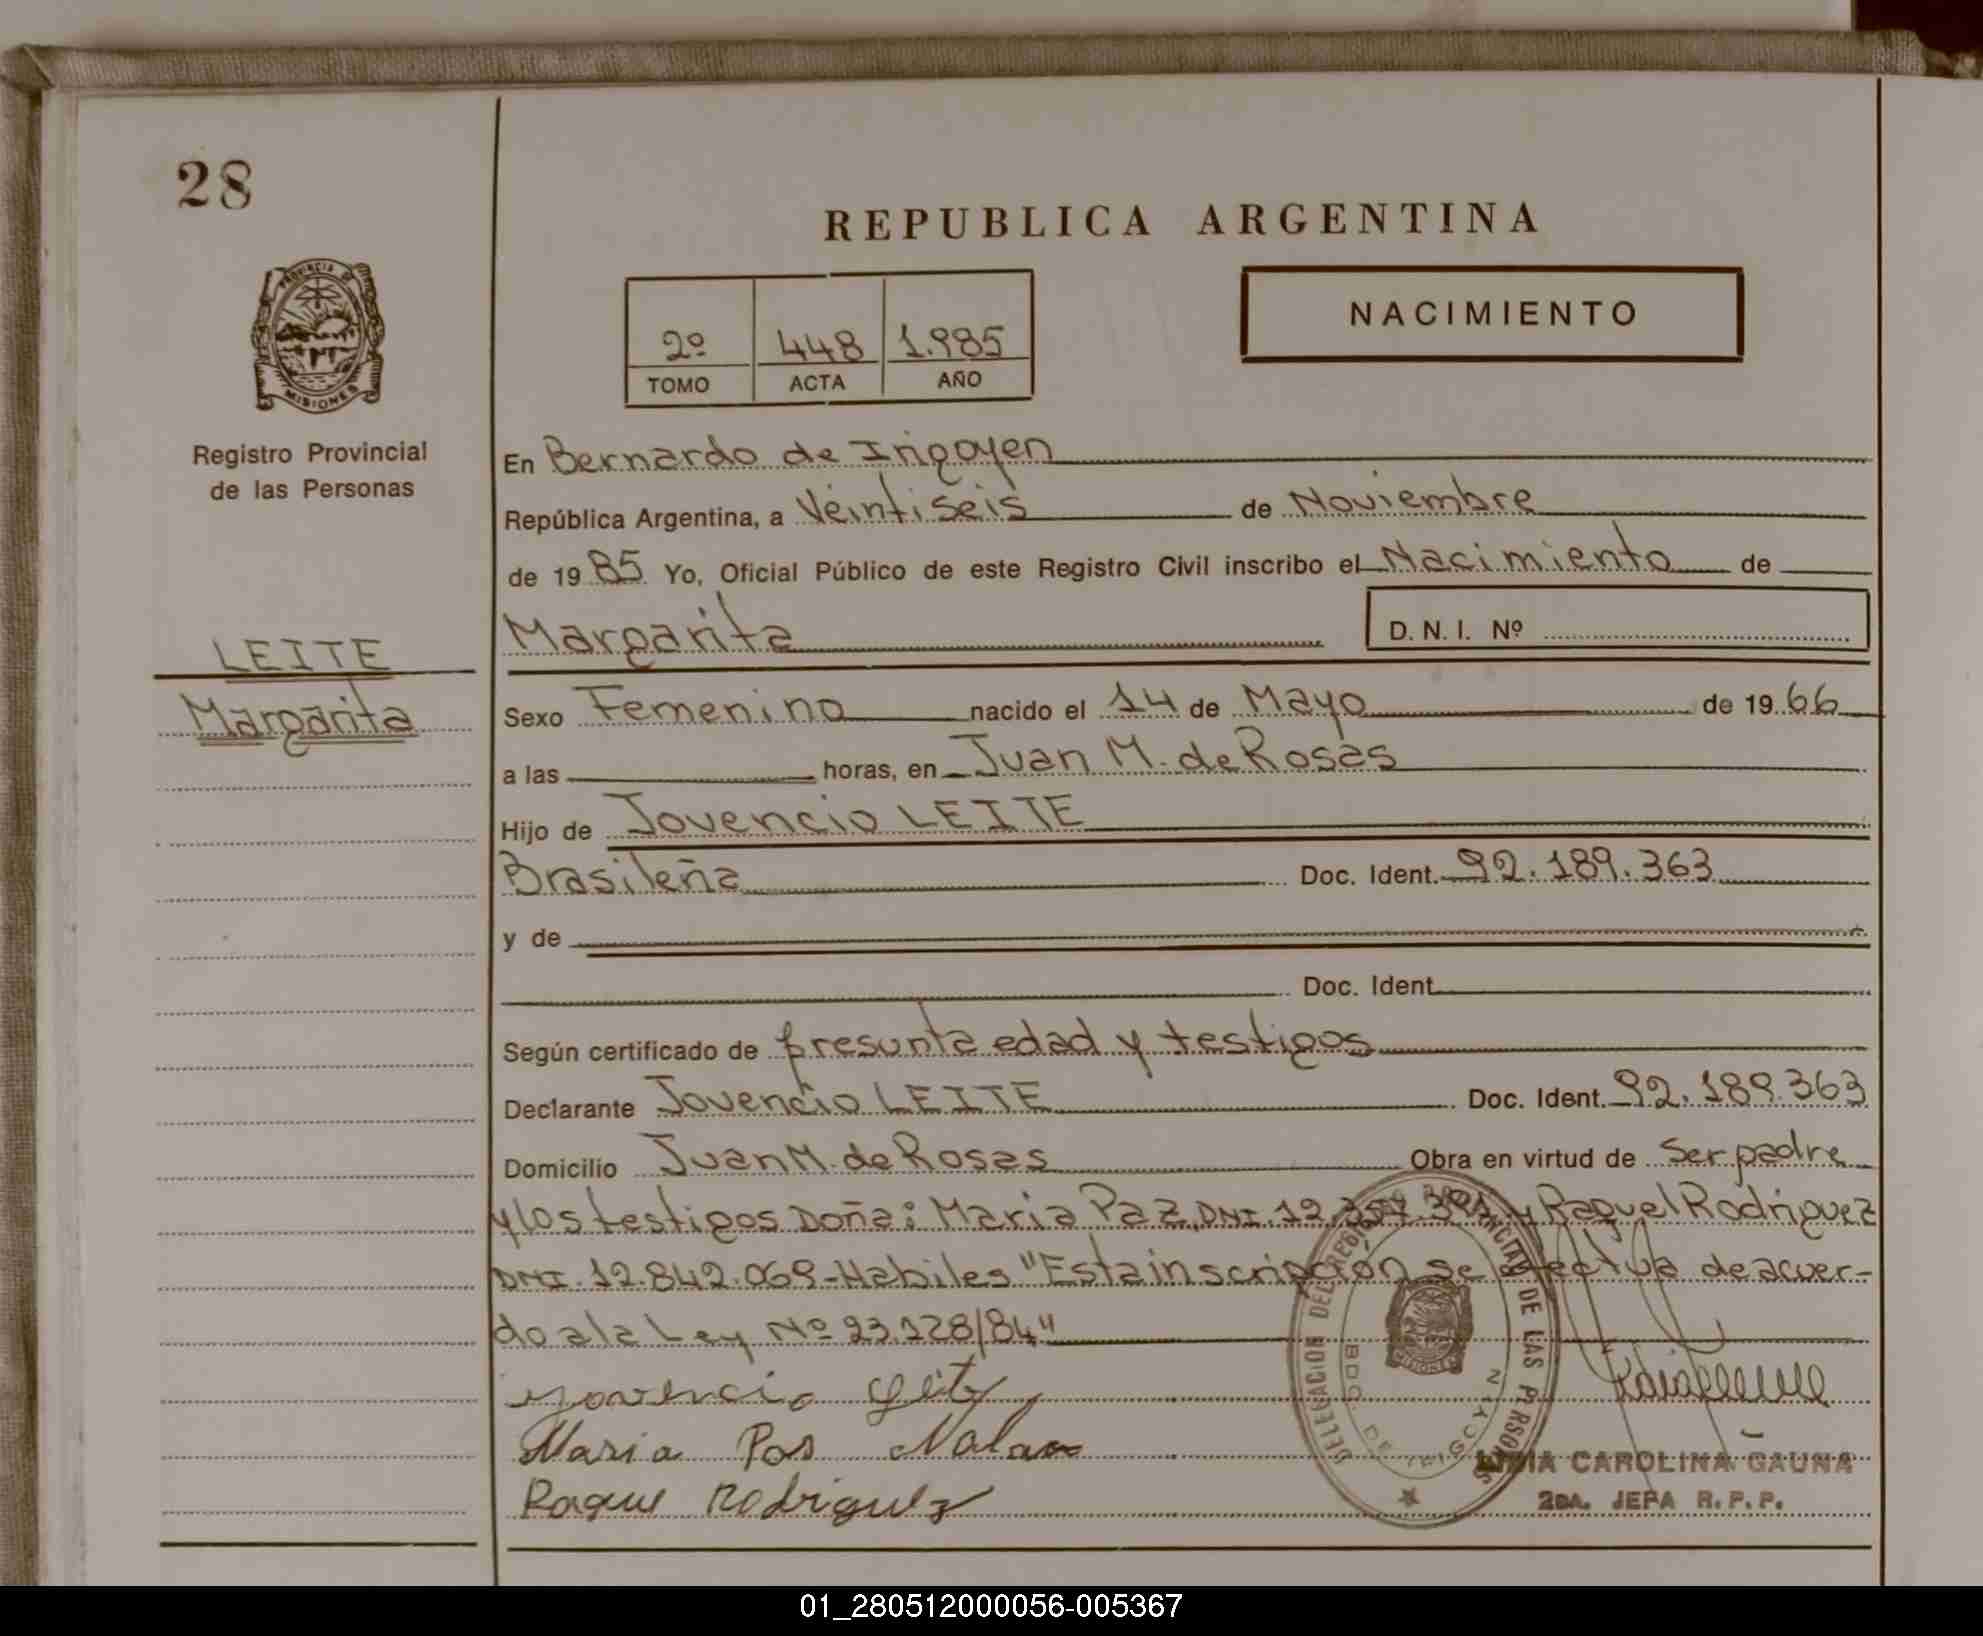 28
REPUBLICA ARGENTINA
PROVINCIA DE
MISIONES
2º 448 1.985
TOMO ACTA AÑO
NACIMIENTO
Registro Provincial
de las Personas
LEITE
Margarita
En Bernardo de Irigoyen
República Argentina, a Veintiseis de Noviembre
de 1985 Yo, Oficial Público de este Registro Civil inscribo el Nacimiento de
Margarita D.N.I. Nº
Sexo Femenino nacido el 14 de Mayo de 1966
a las horas, en Juan M. de Rosas
Hijo de Jovencio LEITE
Brasileña Doc. Ident. 92.189.363
y de
Doc. Ident.
Según certificado de presunta edad y testigos
Declarante Jovencio LEITE Doc. Ident. 92.189.363
Domicilio Juan M. de Rosas Obra en virtud de Ser padre
y los testigos Doña: Maria Paz, DNI. 12. y Raquel Rodriguez
DNI. 12.842.069-Habiles "Esta inscripción se efectua de acuer-
do a la Ley Nº 23.128/84"
Maria
Rodriguez
DELEGACION DEL REGISTRO PROVINCIAL DE LAS PERSONAS
BDO. DE IRIGOYEN
MISIONES
LIDIA CAROLINA GAUNA
2DA. JEFA R. P. P.
01_280512000056-005367